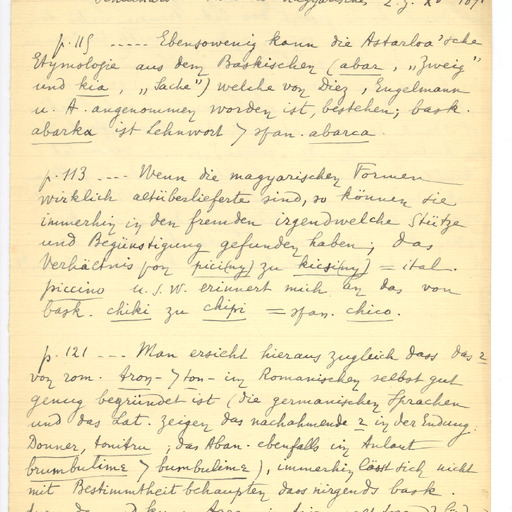 Magyarisches Z. f.
p. 115 ----- Ebensowenig kann die Astarloa'sche
Etymologie aus dem Baskischen (abar, „Zweig"
und kia, „Sache") welche von Diez, Engelmann
u. A. angenommen worden ist, bestehen; bask.
abarka ist Lehnwort > span. abarca.
p. 113 ---- Wenn die magyarischen Formen
wirklich altüberlieferte sind, so können sie
immerhin in den fremden irgendwelche Stütze
und Begünstigung gefunden haben; das
Verhältnis von pici(ny) zu kicsi(ny) = ital.
piccino u. s. w. erinnert mich an das von
bask. chiki zu chipi = span. chico.
p. 121 --- Man ersicht hieraus zugleich dass das r
von rom. tron- > ton- im Romanischen selbst gut
genug begründet ist (die germanischen Sprachen
und das Lat. zeigen das nachahmende r in der Endung:
Donner, tonitru; das Alban. ebenfalls im Anlaut
brumbulime > bumbulime), immerhin lässt sich nicht
mit Bestimmtheit behaupten dass nirgends bask.